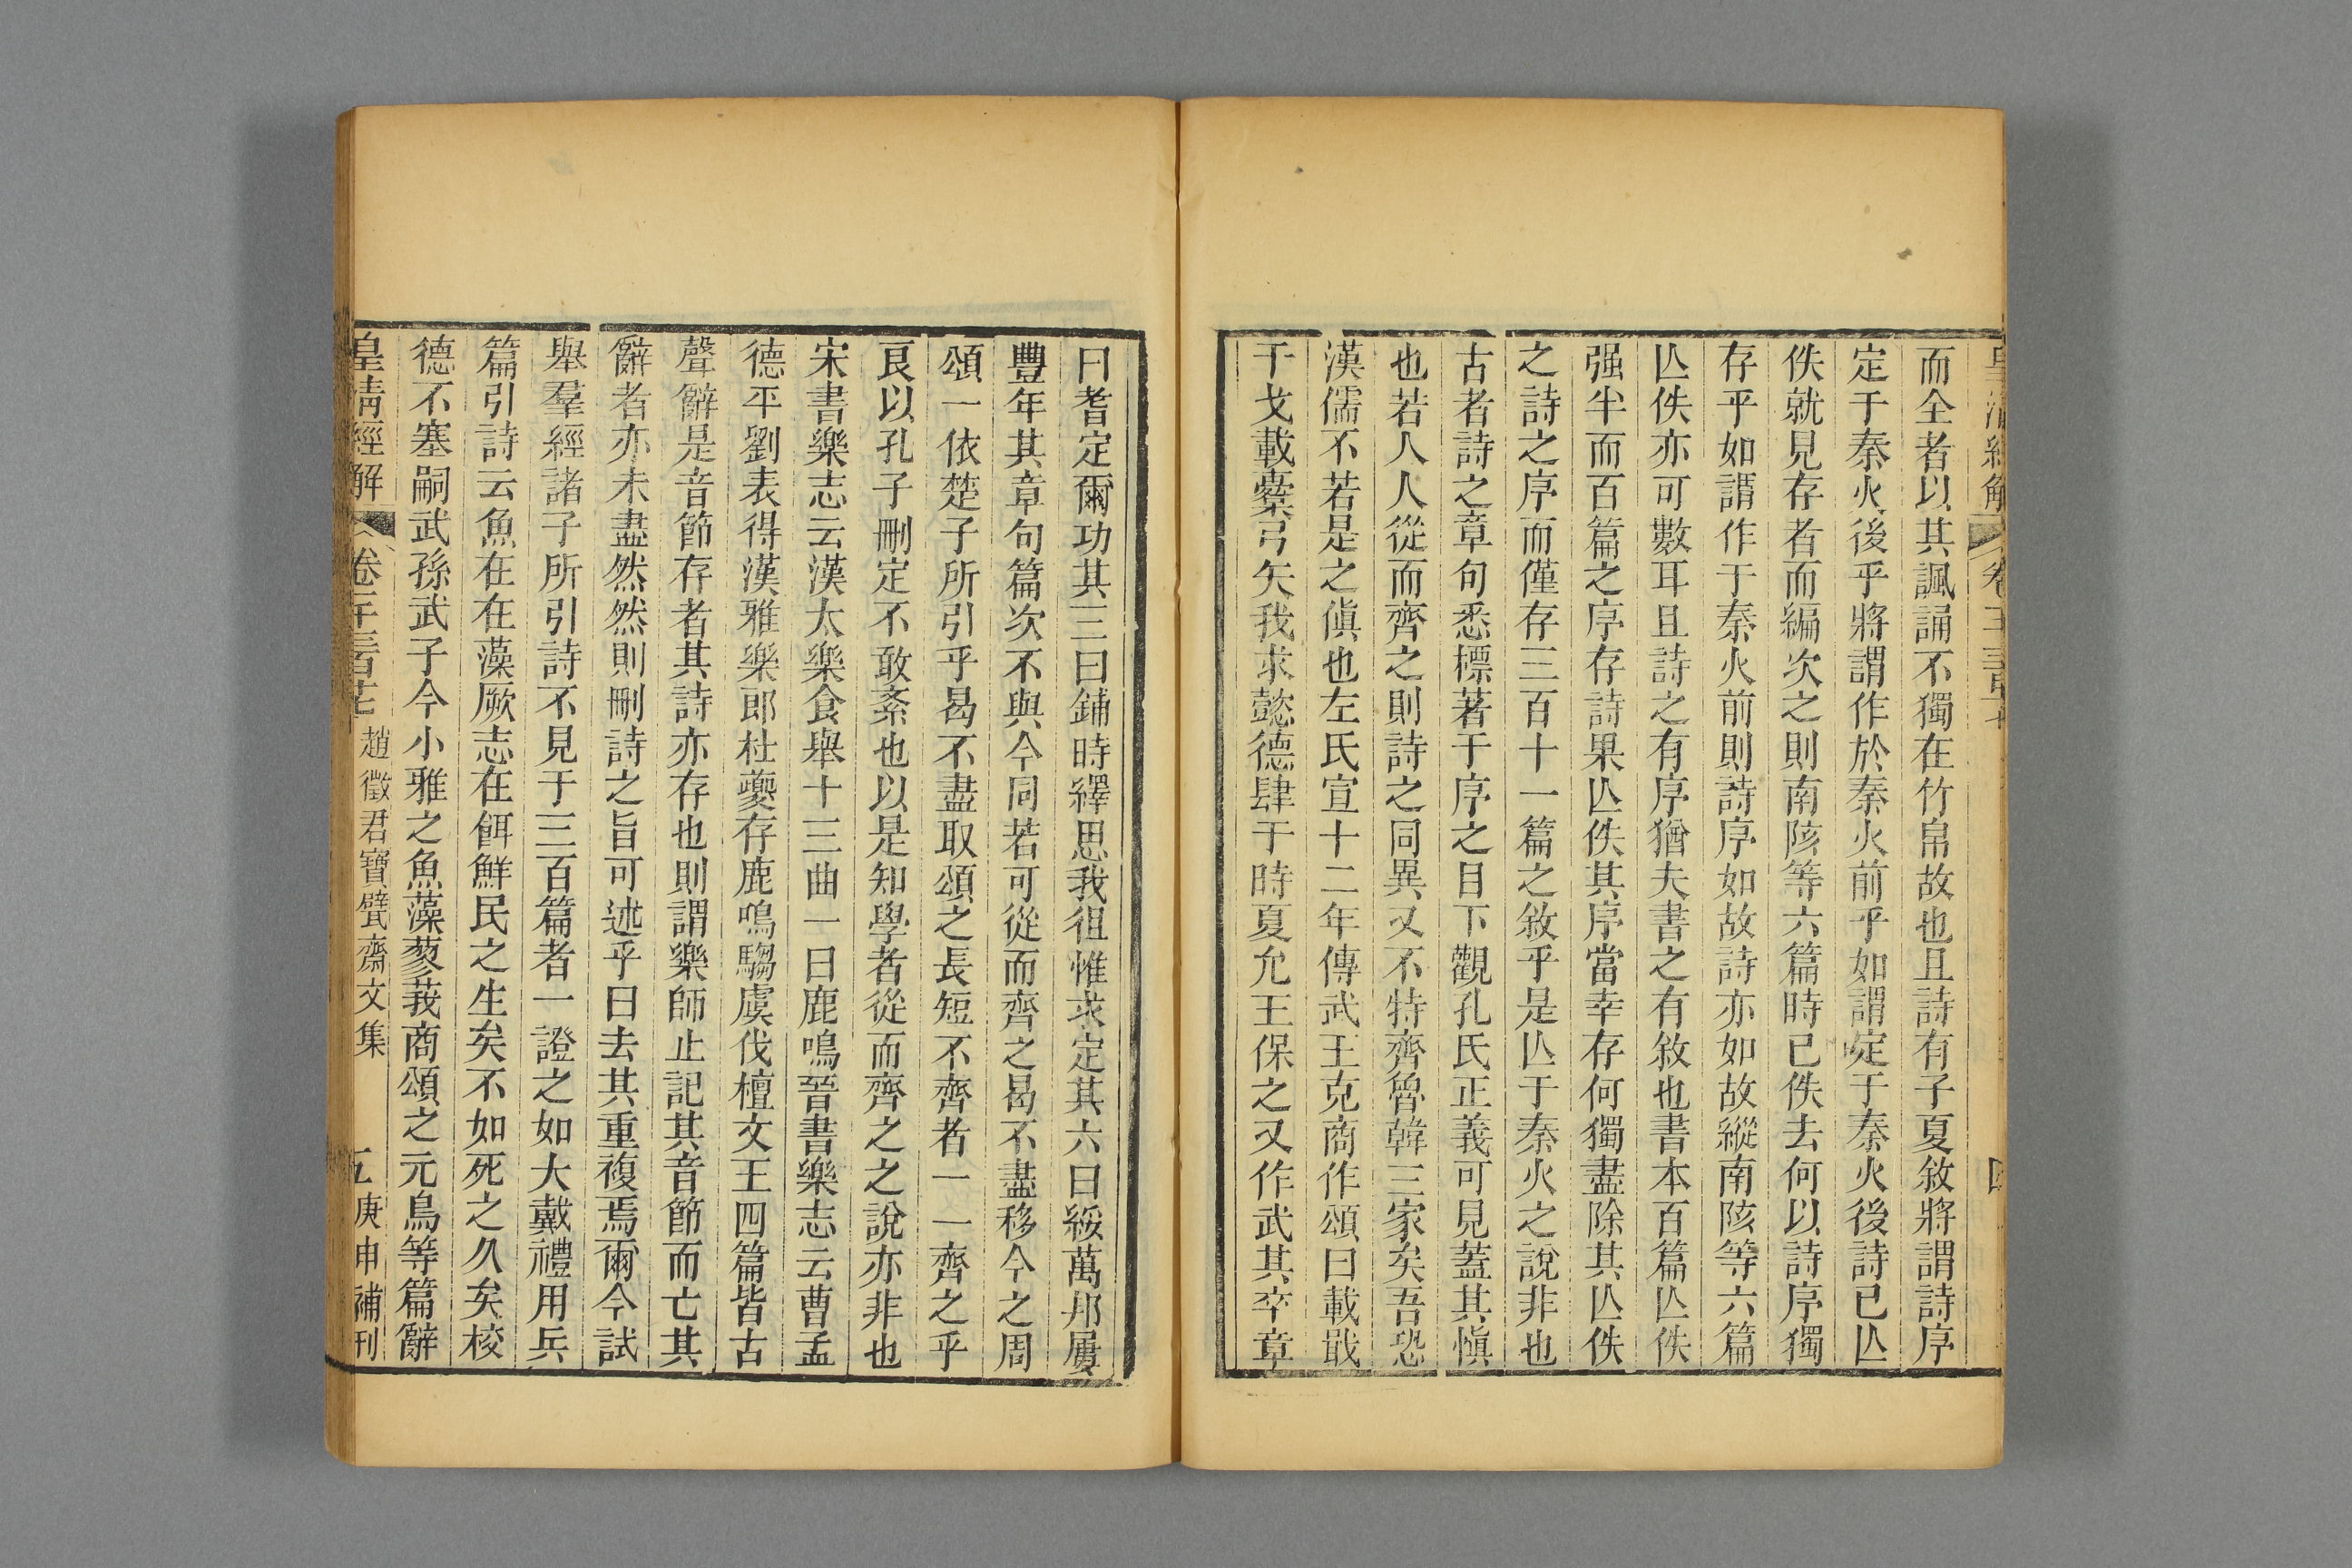 而全者以其諷誦不獨在竹帛故也且詩有子夏敘將謂詩序
定于秦火後乎將謂作於秦火前乎如謂定于秦火後詩已亾
佚就見存者而編次之則南陔等六篇時已佚去何以詩序獨
存乎如謂作于秦火前則詩序如故詩亦如故縱南陔等六篇
亾佚亦可數耳且詩之有序猶夫書之有敘也書本百篇亾佚
强半而百篇之序存詩果亾佚其序當幸存何獨盡除其亾佚
之詩之序而僅存三百十一篇之敘乎是亾于秦火之說非也
古者詩之章句悉標著于序之目下觀孔氏正義可見蓋其愼
也若人人從而齊之則詩之同異又不特齊魯韓三家矣吾恐
漢儒不若是之傎也左氏宣十二年傳武王克商作頌曰載戢
干戈載櫜弓矢我求懿德肆于時夏允王保之又作武其卒章
曰耆定爾功其三曰鋪時繹思我徂惟求定其六曰綏萬邦屢
豐年其章句篇次不與今同若可從而齊之曷不盡移今之周
頌一依楚子所引乎曷不盡取頌之長短不齊者一一齊之乎
良以孔子刪定不敢紊也以是知學者從而齊之之說亦非也
宋書樂志云漢太樂食舉十三曲一曰鹿鳴晉書樂志云曹孟
德平劉表得漢雅樂郎杜夔存鹿鳴騶虞伐檀文王四篇皆古
聲辭是音節存者其詩亦存也則謂樂師止記其音節而亡其
辭者亦未盡然然則刪詩之旨可述乎曰去其重複焉爾今試
舉羣經諸子所引詩不見于三百篇者一證之如大戴禮用兵
篇引詩云魚在在藻厥志在餌鮮民之生矣不如死之久矣校
德不塞嗣武孫武子今小雅之魚藻蓼莪商頌之元鳥等篇辭
皇清經解 卷 趙徵君寶甓齋文集 五 庚申補刊